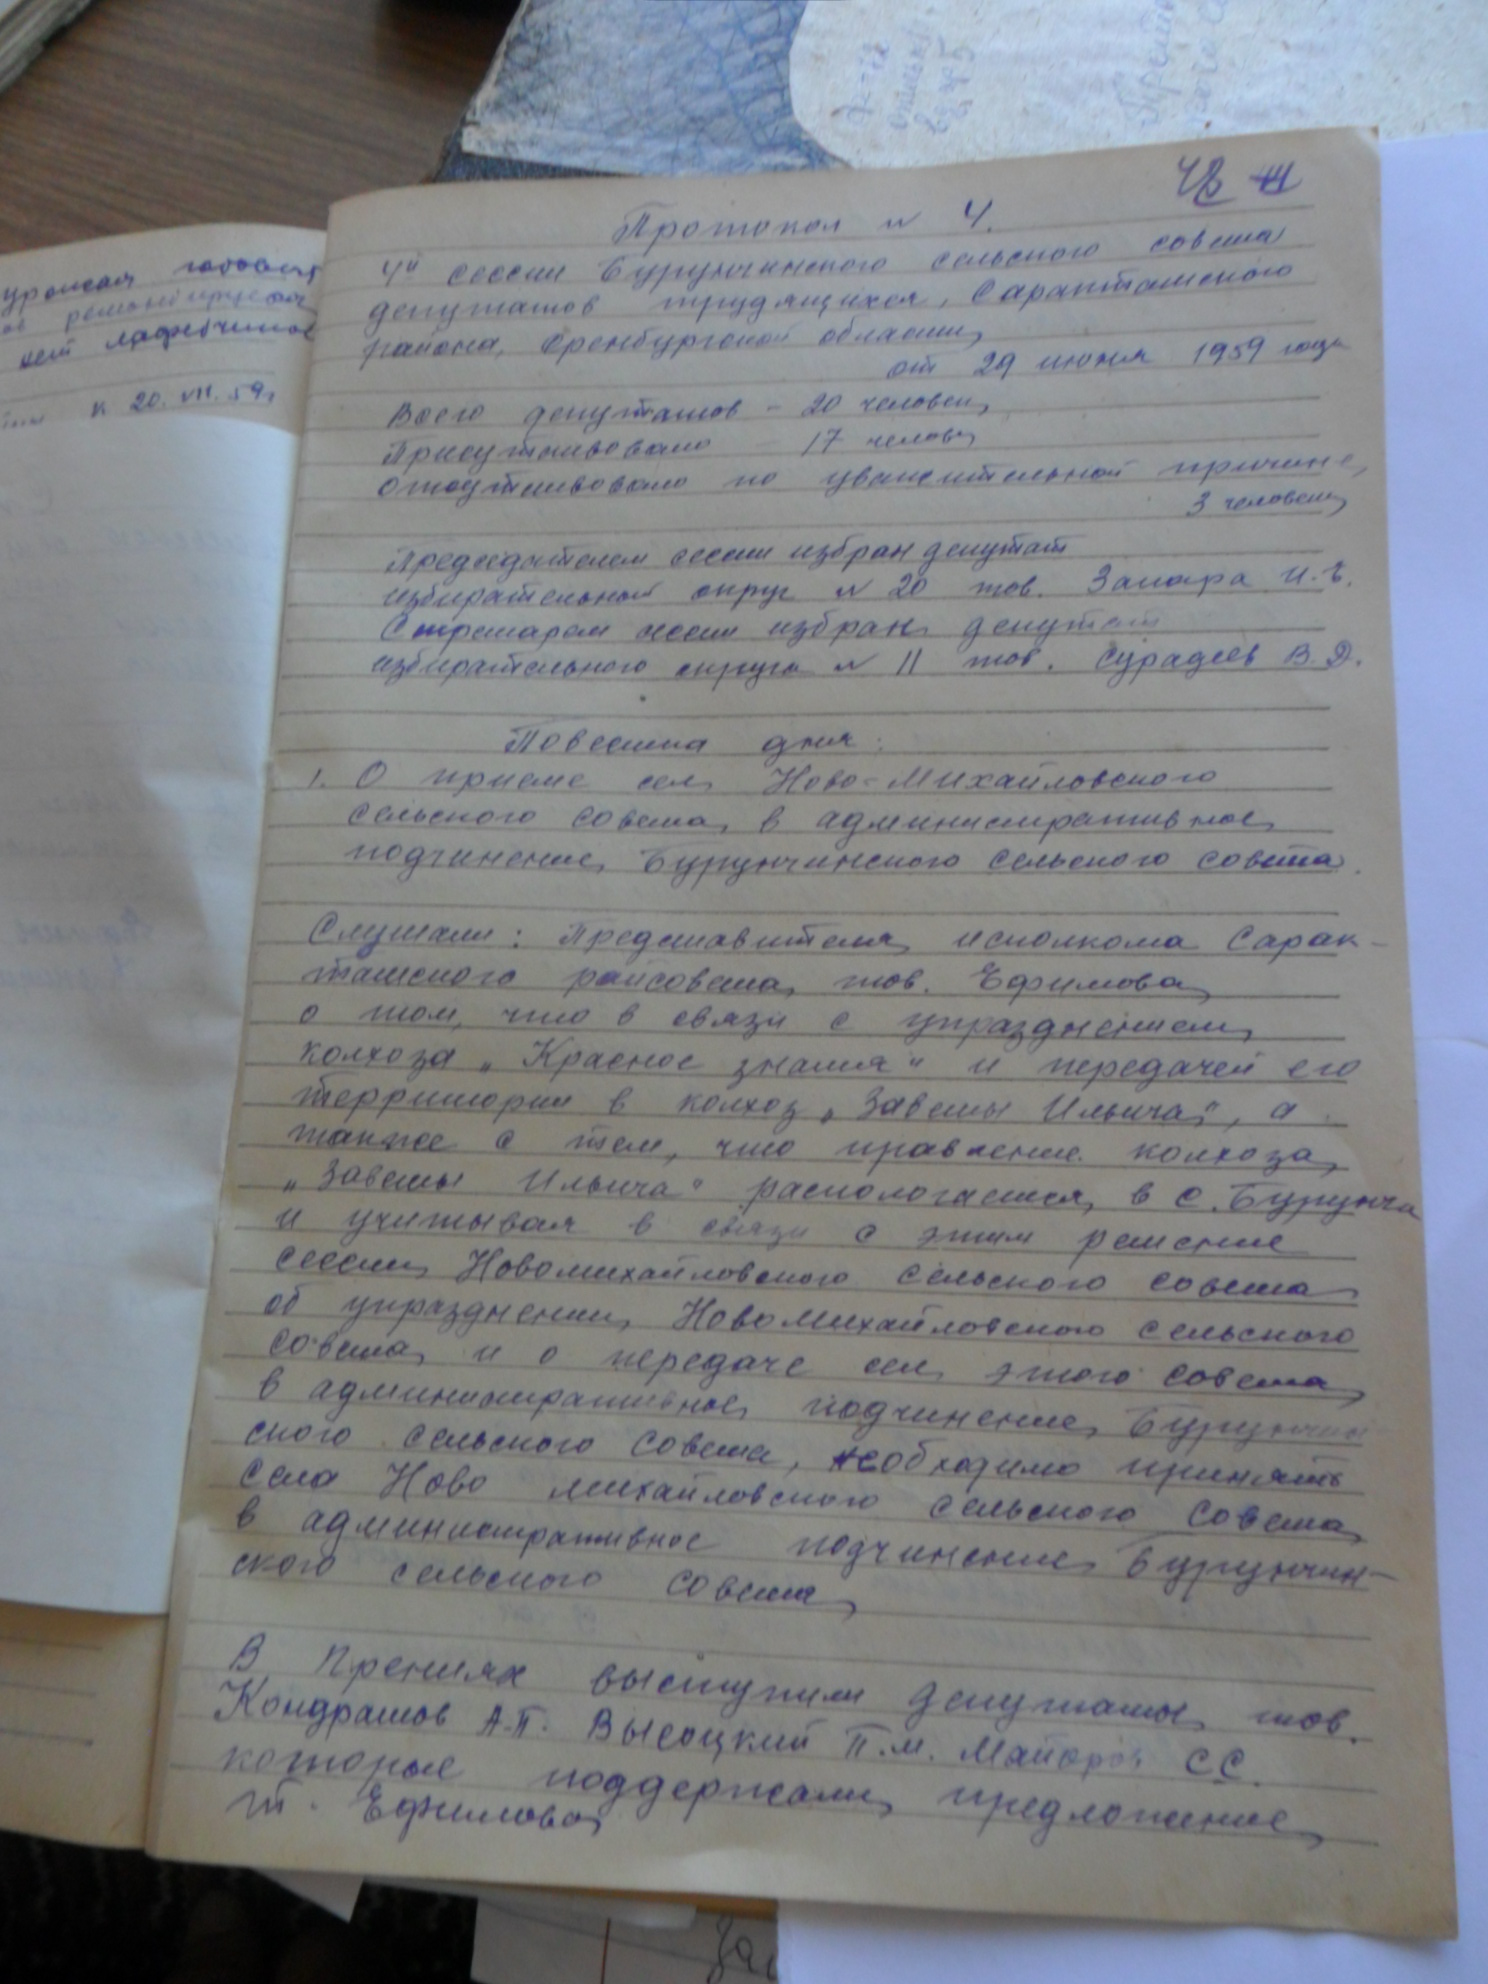 урожая
к 20. VII. 59 г
42
Протокол № 4.
4й сессии Бурунчинского сельского совета
депутатов трудящихся, Саракташского
района, Оренбургской области,
от 29 июня 1959 года
Всего депутатов - 20 человек,
Присутствовало - 17 человек
Отсутствовало по уважительной причине,
3 человека
Председателем сессии избран депутат
избирательной округ № 20 тов. Запара И.Е.
Секретарем сессии избран депутат
избирательного округа № 11 тов. Сурадеев В.Д.
Повестка дня:
1. О приеме сел Ново-Михайловского
сельского совета в административное
подчинение Бурунчинского сельского совета.
Слушали: Представителя исполкома Сарак-
ташского райсовета тов. Ефимова
о том, что в связи с упразднением
колхоза „Красное знамя" и передачей его
территории в колхоз „Заветы Ильича", а
также с тем, что правление колхоза
„Заветы Ильича" распологается в с. Бурунча
и учитывая в связи с этим решение
сессии Новомихайловского сельского совета
об упразднении НовоМихайловского сельского
совета и о передаче сел этого совета
в административное подчинение Бурунчин
ского сельского совета, необходимо принять
села Ново михайловского сельского совета
в административное подчинение Бурунчин-
ского сельского совета
В прениях выступили депутаты тов.
Кондрашов А.П. Высоцкий П.М. Майоров С.С.
которые поддержали предложение
т. Ефимова